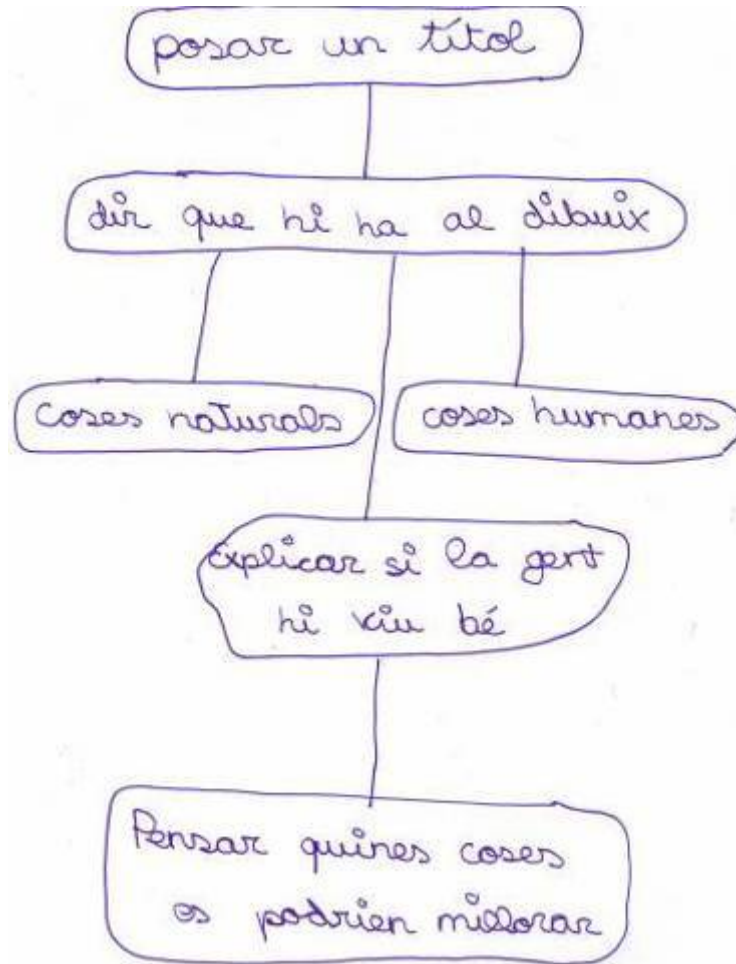 posar un títol
dir que hi ha al dibuix
coses naturals
coses humanes
Explicar si la gent
hi viu bé
Pensar quines coses
es podrien millorar